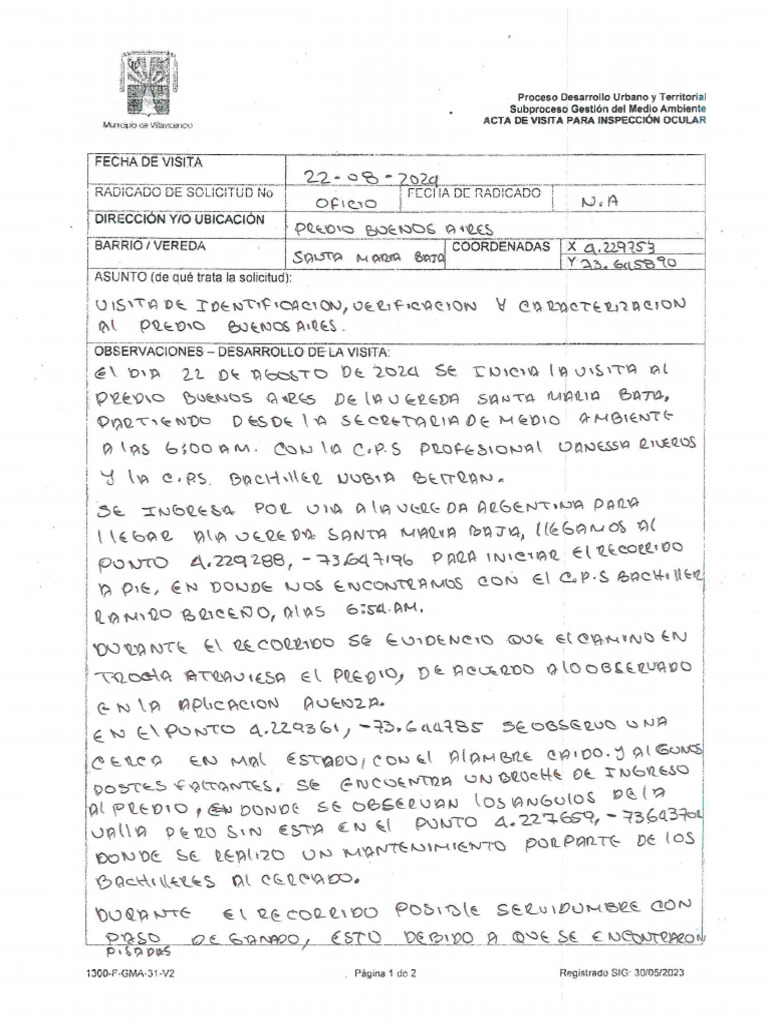 Municipio de Villavicencio
Proceso Desarrollo Urbano y Territorial
Subproceso Gestión del Medio Ambiente
ACTA DE VISITA PARA INSPECCIÓN OCULAR
FECHA DE VISITA 22-08-2024
RADICADO DE SOLICITUD No OFICIO FECHA DE RADICADO N.A
DIRECCIÓN Y/O UBICACIÓN PREDIO BUENOS AIRES
BARRIO / VEREDA SANTA MARIA BAJA COORDENADAS X 4.229753
Y 73.645890
ASUNTO (de qué trata la solicitud):
VISITA DE IDENTIFICACION, VERIFICACION Y CARACTERIZACION
AL PREDIO BUENOS AIRES.
OBSERVACIONES – DESARROLLO DE LA VISITA:
EL DIA 22 DE AGOSTO DE 2024 SE INICIA LA VISITA AL
PREDIO BUENOS AIRES DE LA VEREDA SANTA MARIA BAJA,
PARTIENDO DESDE LA SECRETARIA DE MEDIO AMBIENTE
A LAS 6:00 AM. CON LA C.P.S PROFESIONAL VANESSA RIVEROS
Y LA C.P.S. BACHILLER NUBIA BELTRAN.
SE INGRESA POR VIA A LA VEREDA ARGENTINA PARA
LLEGAR A LA VEREDA SANTA MARIA BAJA, LLEGAMOS AL
PUNTO 4.229288, -73.647196 PARA INICIAR EL RECORRIDO
A PIE, EN DONDE NOS ENCONTRAMOS CON EL C.P.S BACHILLER
RAMIRO BRICEÑO, A LAS 6:54 AM.
DURANTE EL RECORRIDO SE EVIDENCIO QUE EL CAMINO EN
TROCHA ATRAVIESA EL PREDIO, DE ACUERDO A LO OBSERVADO
EN LA APLICACION AVENZA.
EN EL PUNTO 4.229361, -73.644785 SE OBSERVO UNA
CERCA EN MAL ESTADO, CON EL ALAMBRE CAIDO. Y ALGUNOS
POSTES FALTANTES. SE ENCUENTRA UN BROCHE DE INGRESO
AL PREDIO, EN DONDE SE OBSERVAN LOS ANGULOS DE LA
VALLA PERO SIN ESTA EN EL PUNTO 4.227659, -73643702
DONDE SE REALIZO UN MANTENIMIENTO POR PARTE DE LOS
BACHILLERES AL CERCADO.
DURANTE EL RECORRIDO POSIBLE SERVIDUMBRE CON
PASO DE GANADO, ESTO DEBIDO A QUE SE ENCONTRARON
PISADAS
1300-F-GMA-31-V2 Página 1 de 2 Registrado SIG: 30/05/2023